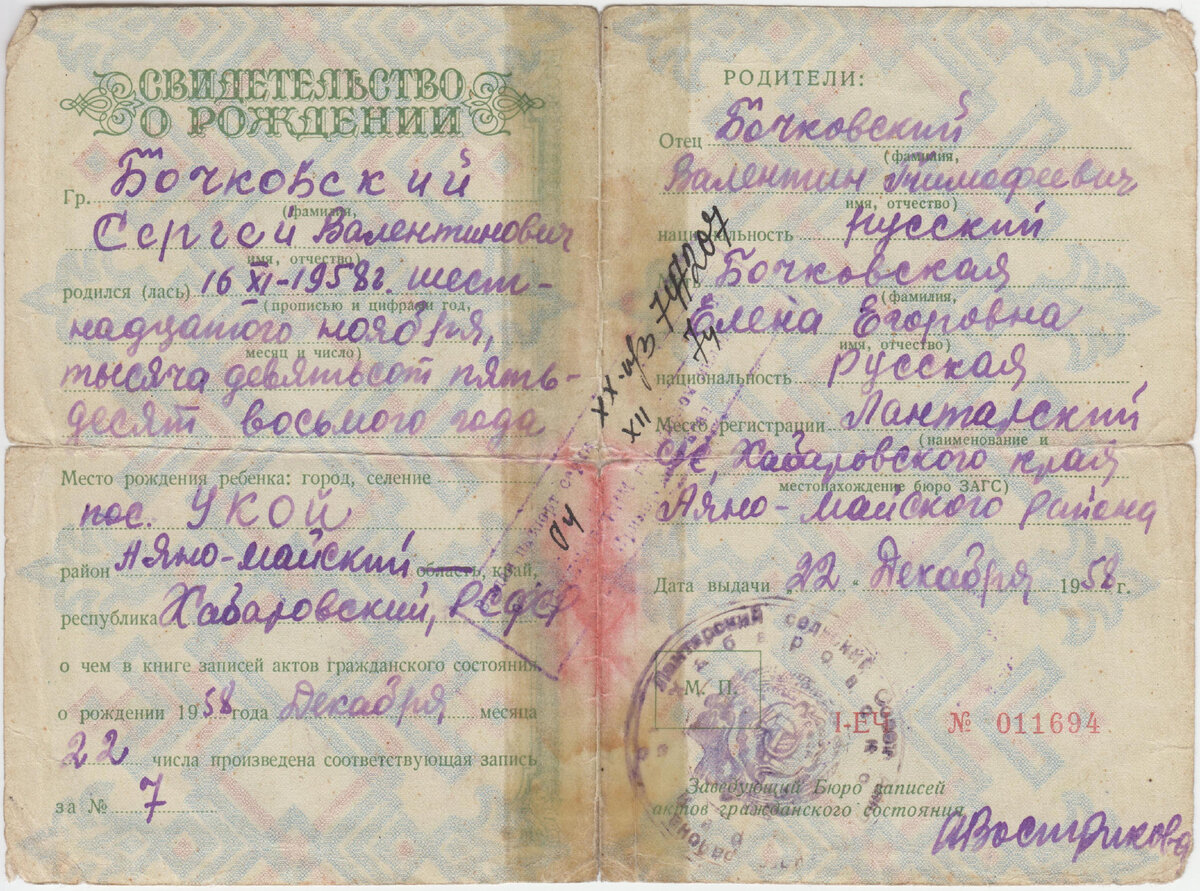 СВИДЕТЕЛЬСТВО
О РОЖДЕНИИ
Гр. Бочковский
(фамилия,
Сергей Валентинович
имя, отчество)
родился (лась) 16 XI-1958г. шест-
(прописью и цифрами год,
надцатого ноября,
месяц и число)
тысяча девятьсот пять-
десят восьмого года
Место рождения ребенка: город, селение
пос. Укой
район Аяно-майский область, край,
республика Хабаровский, РСФСР
о чем в книге записей актов гражданского состояния
о рождении 1958 года Декабря месяца
22 числа произведена соответствующая запись
за № 7
РОДИТЕЛИ:
Отец Бочковский
(фамилия,
Валентин Тимофеевич
имя, отчество)
национальность русский
Бочковская
(фамилия,
Елена Егоровна
имя, отчество)
национальность русская
Место регистрации Лантарский
(наименование и
с/с, Хабаровского края
местонахождение бюро ЗАГС)
Аяно-майского района
Дата выдачи „22" Декабря 1958 г.
М. П.
I-ЕЧ № 011694
Заведующий Бюро записей
актов гражданского состояния
АВострикова
XII
74
04
Лантарский сельский